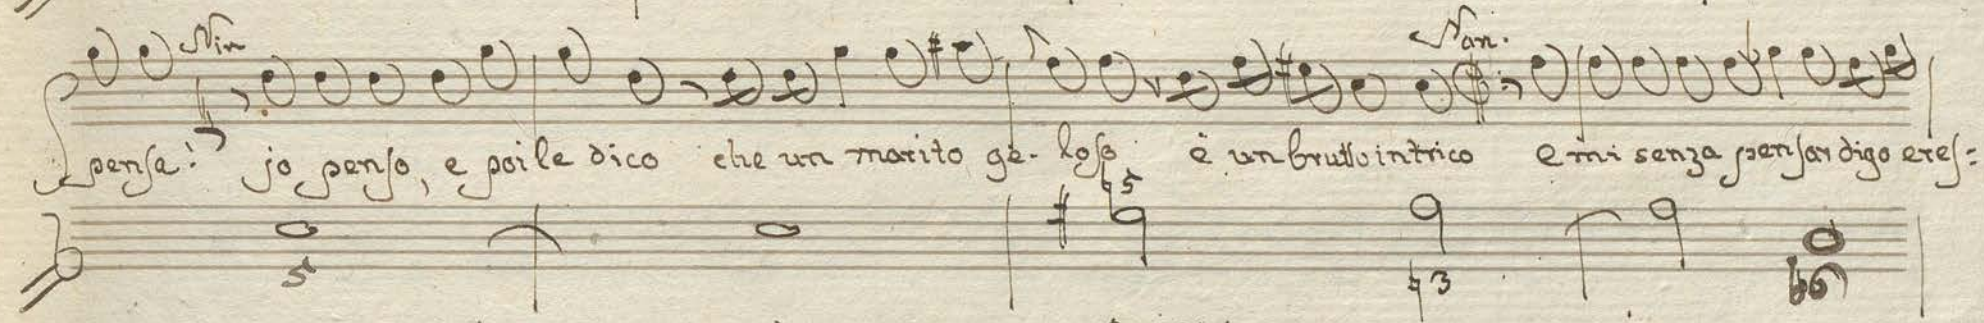 Nin Nan.
pensa! jo penso, e poi le dico che un marito ge- loso è un brutto intrico e mi senza pensar digo e res=
5 ♮5 ♮3 ♭6